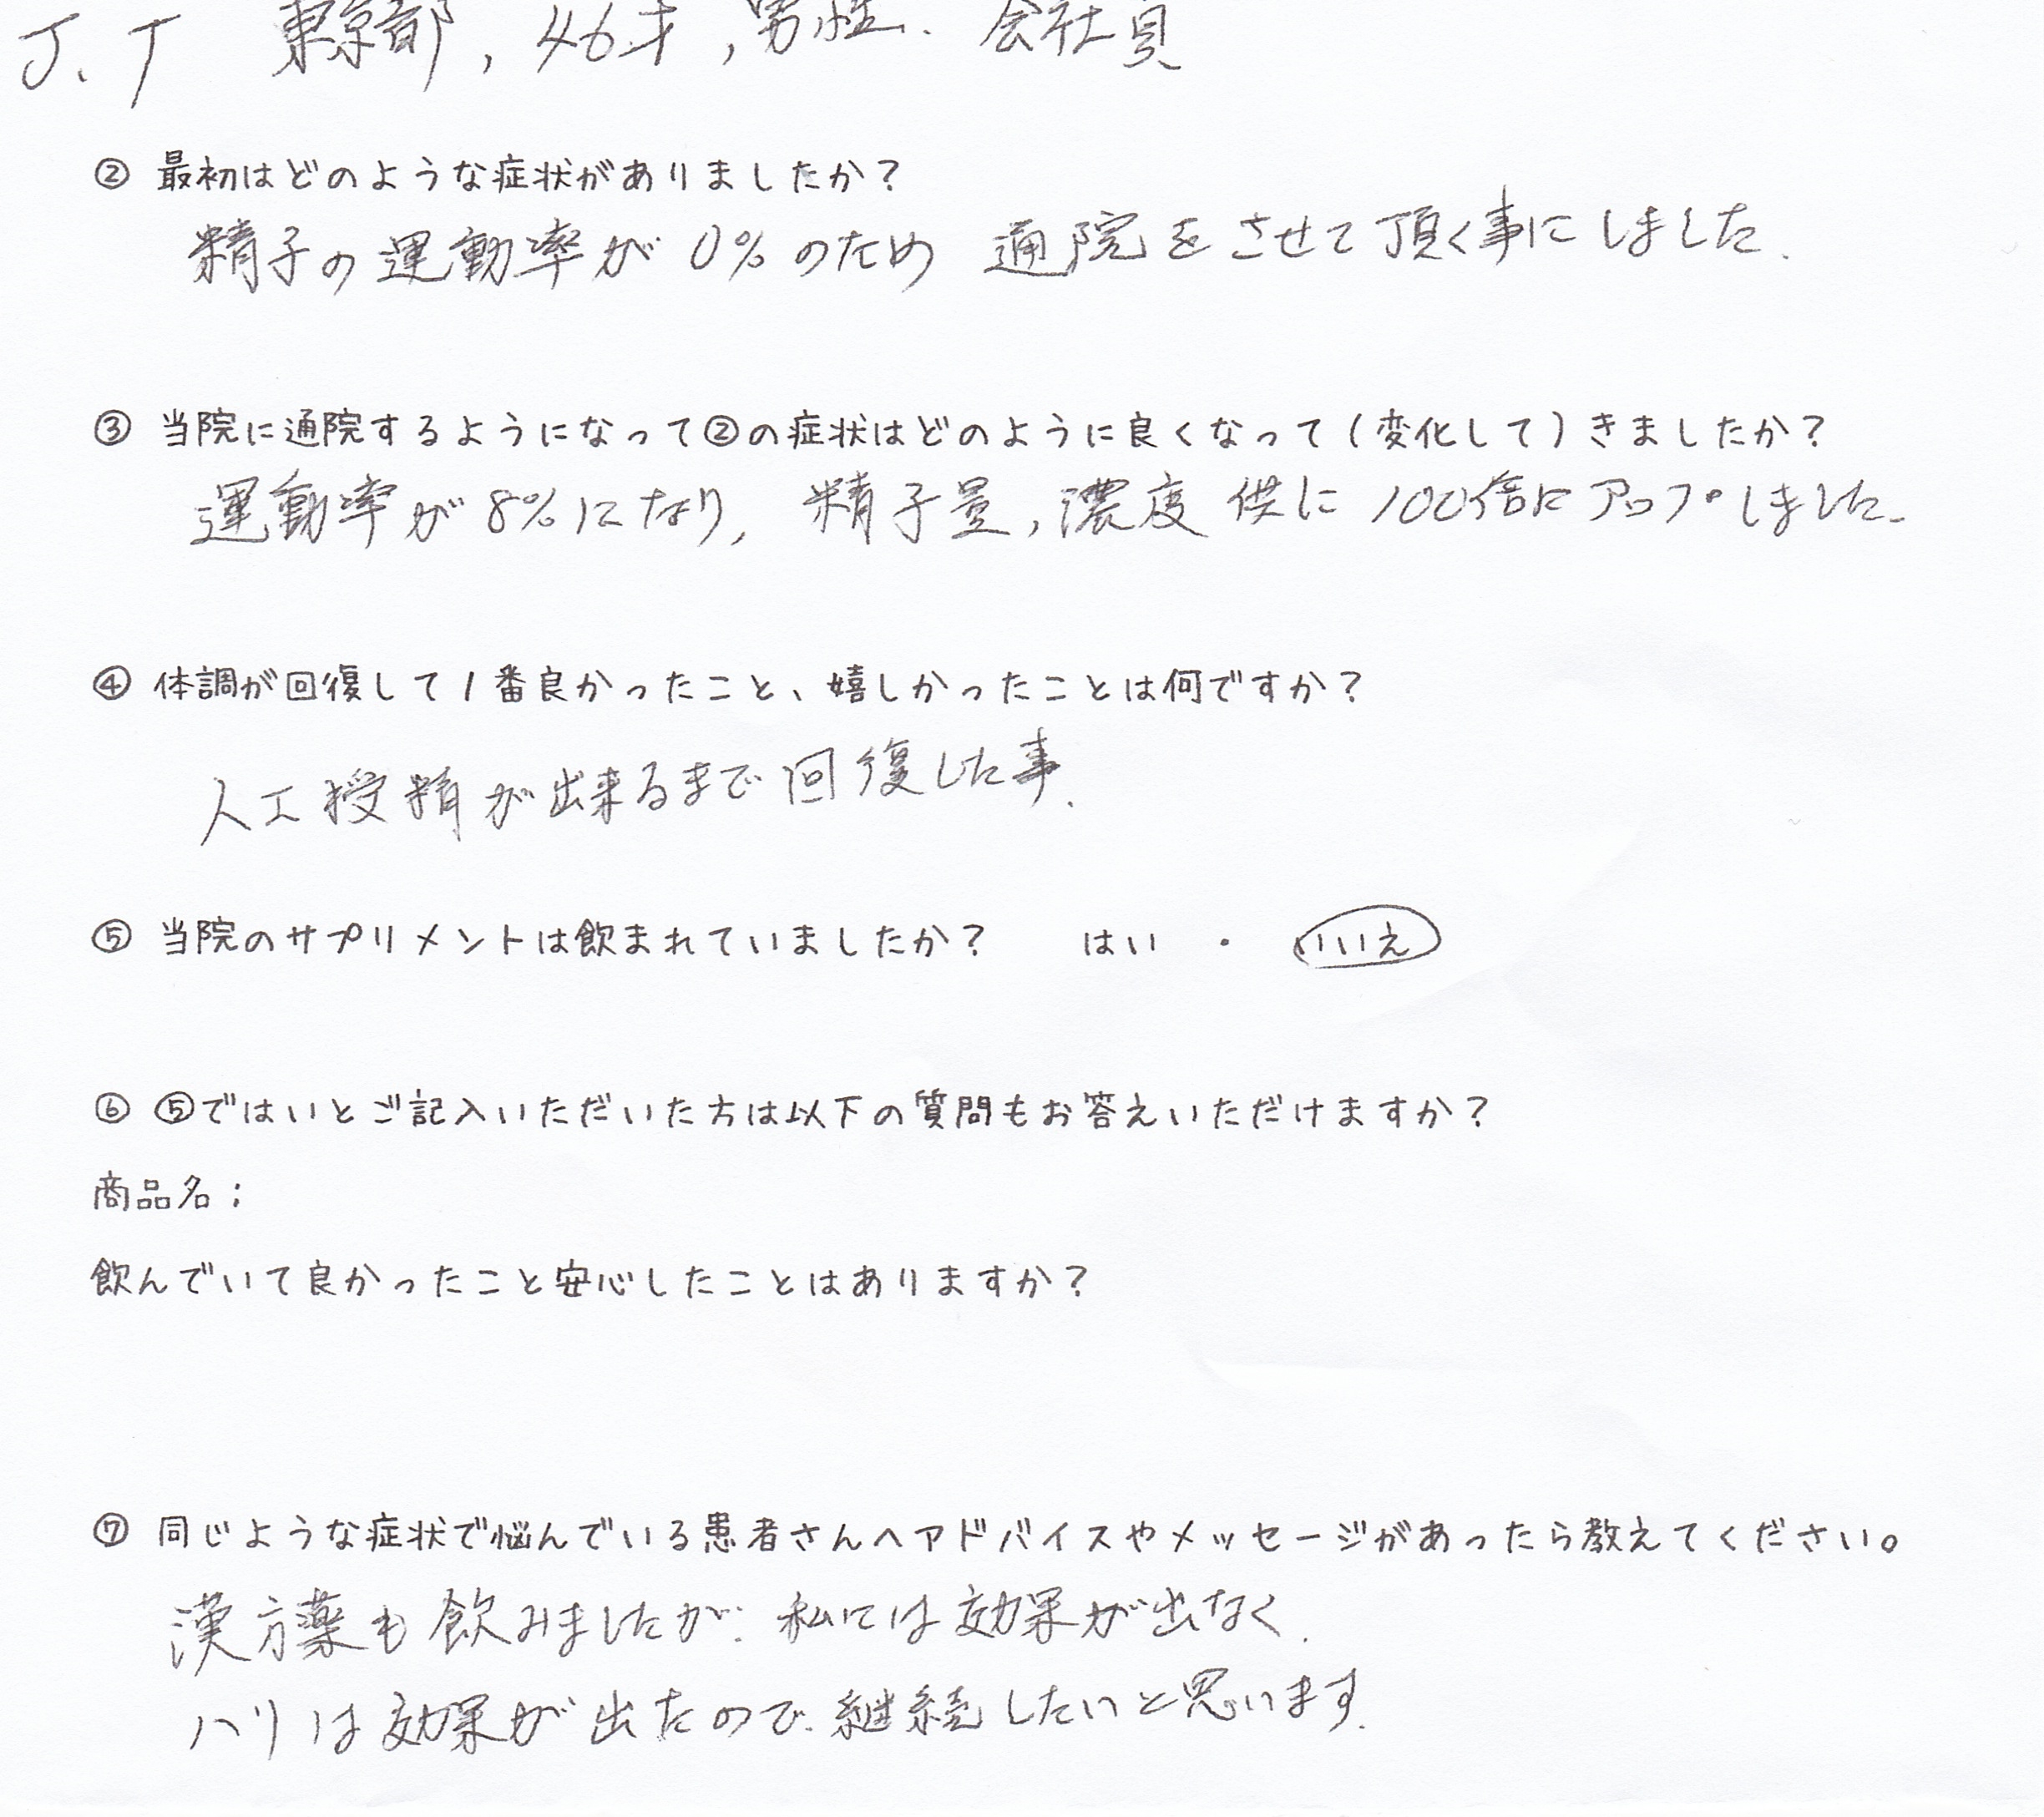 J.T 東京都,46才,男性.会社員
② 最初はどのような症状がありましたか?
精子の運動率が0%のため 通院をさせて頂く事にしました.
③ 当院に通院するようになって②の症状はどのように良くなって(変化して)きましたか?
運動率が8%になり, 精子量,濃度 供に 100倍にアップしました.
④ 体調が回復して1番良かったこと、嬉しかったことは何ですか?
人工授精が出来るまで回復した事.
⑤ 当院のサプリメントは飲まれていましたか? はい ・ いいえ
⑥ ⑤ではいとご記入いただいた方は以下の質問もお答えいただけますか?
商品名;
飲んでいて良かったこと安心したことはありますか?
⑦ 同じような症状で悩んでいる患者さんへアドバイスやメッセージがあったら教えてください。
漢方薬も飲みましたが.私には効果が出なく.
ハリは効果が出たので.継続したいと思います.